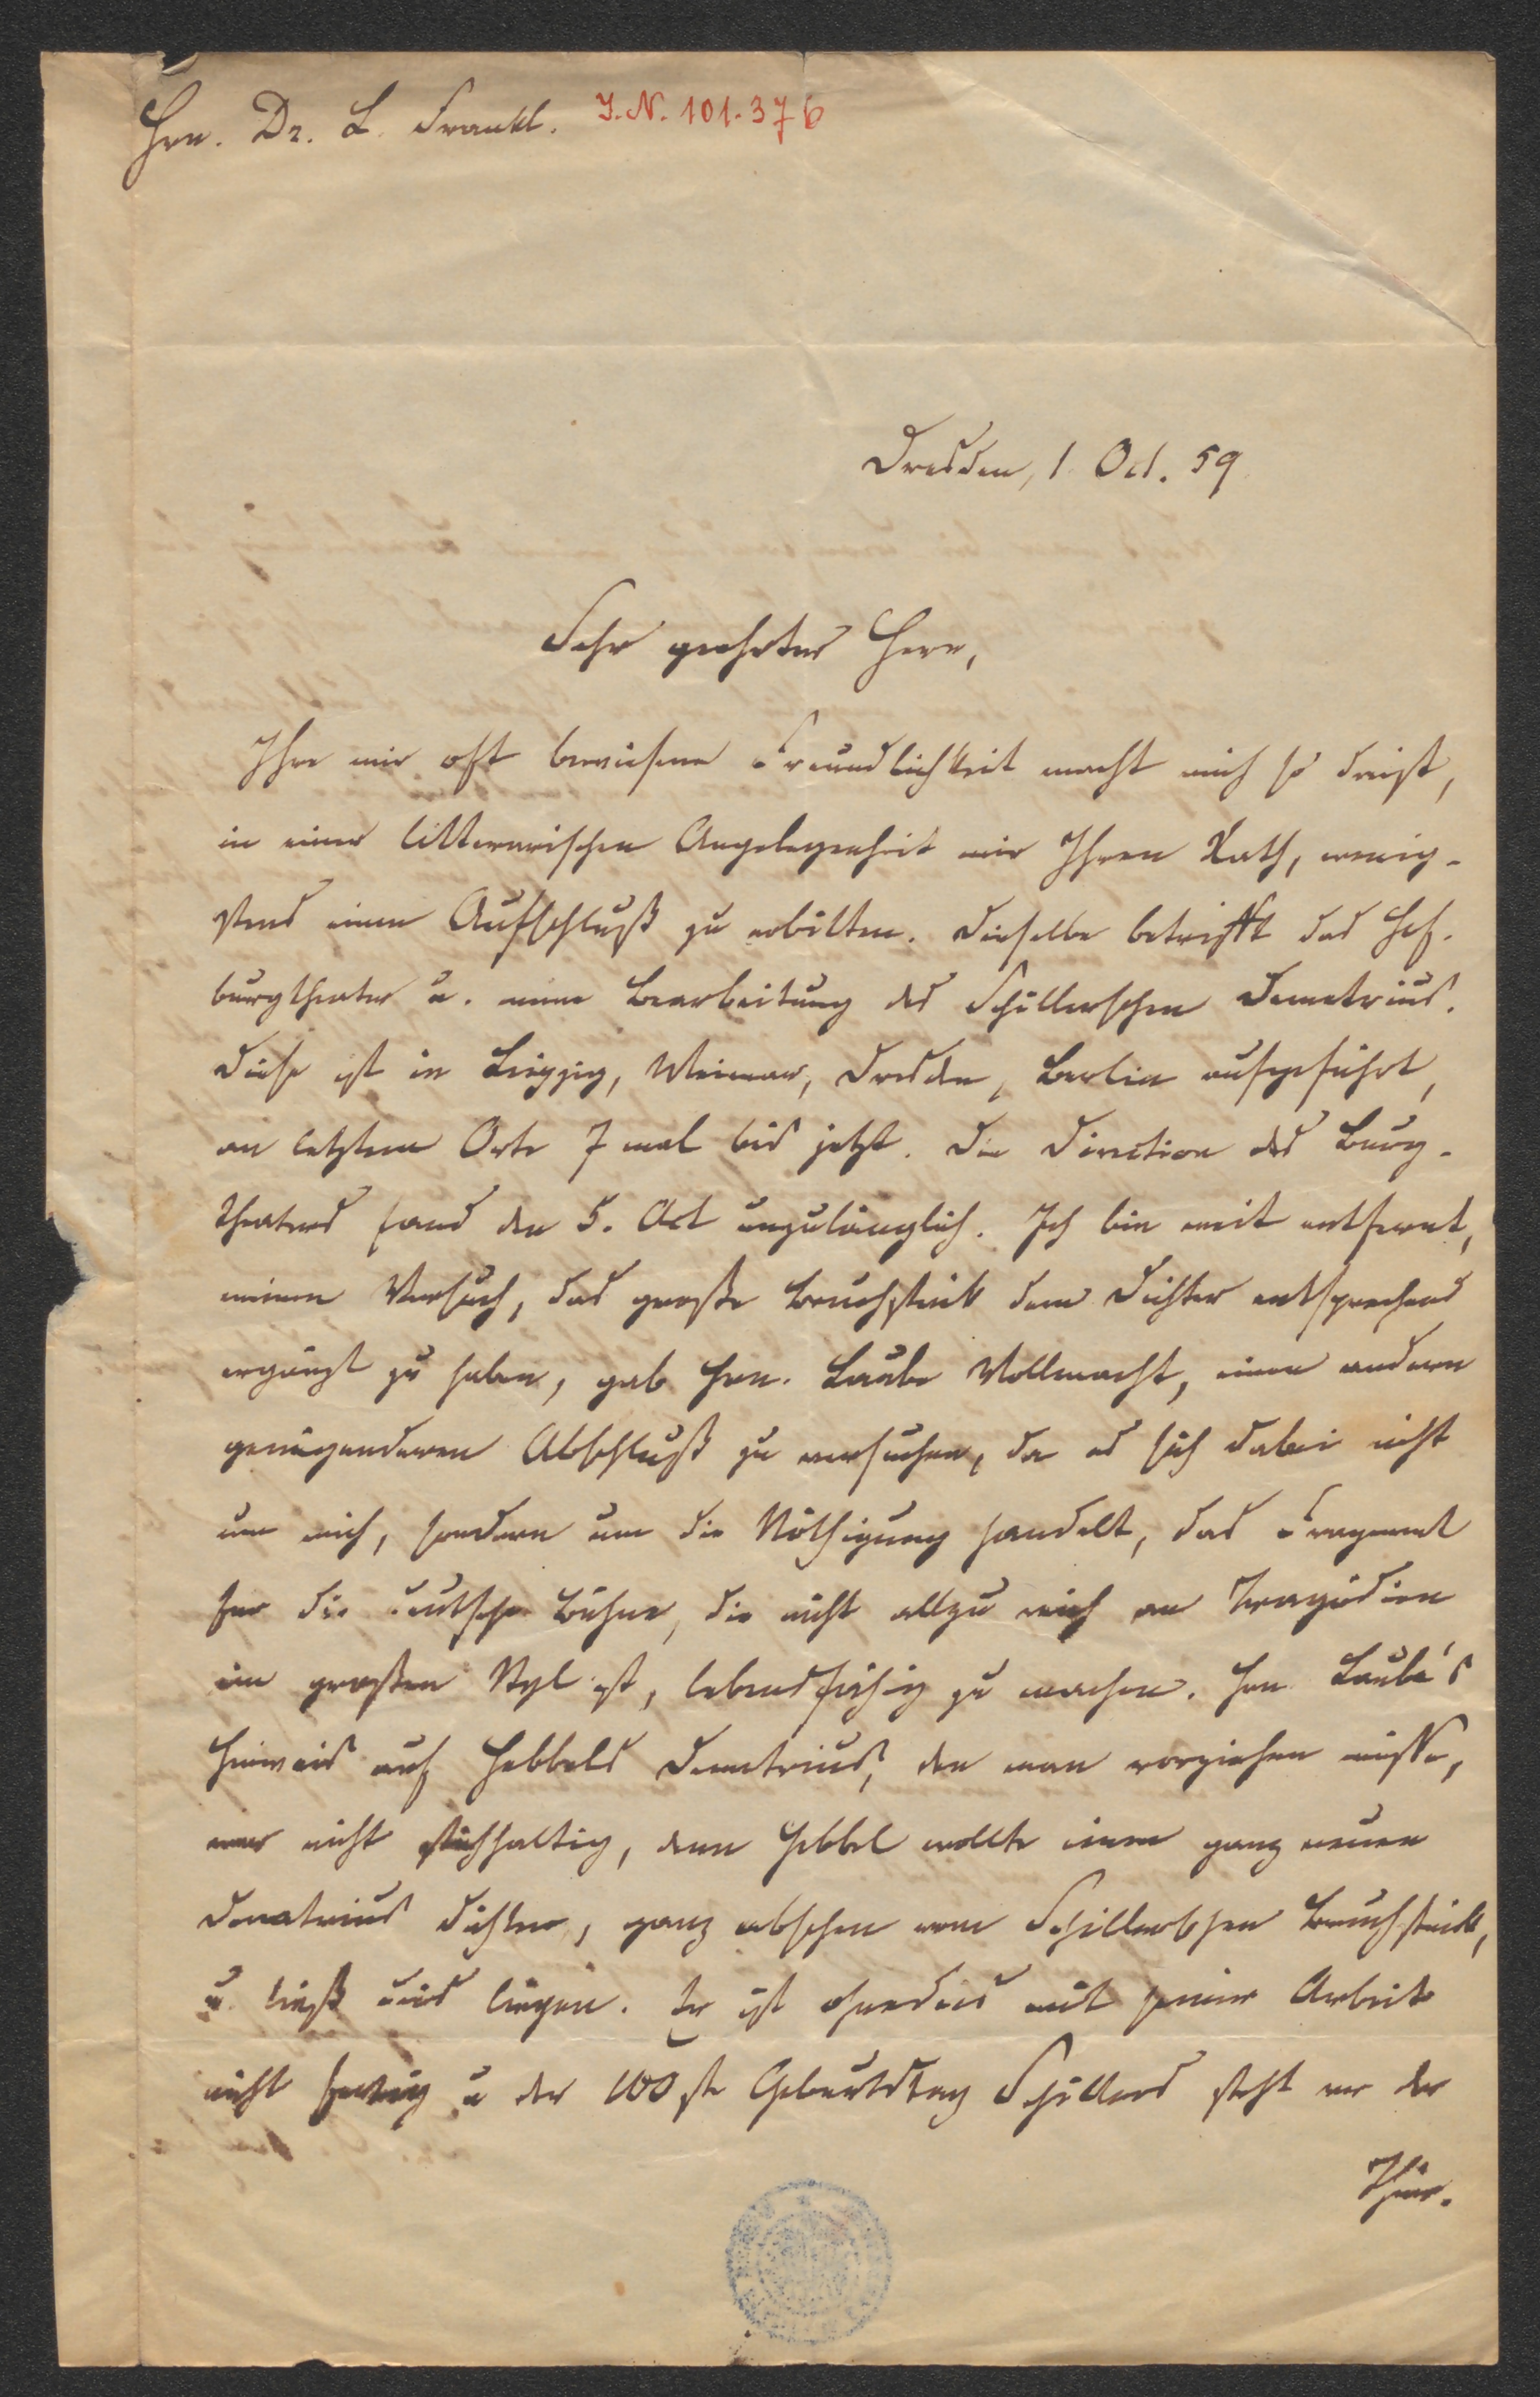 Hrn. Dr. L. Frankl. I.N. 101.376
Dresden, 1 Oct. 59
Sehr geehrter Herr,
Ihre mir oft bewiesene Freundlichkeit macht mich so dreist,
in einer litterarischen Angelegenheit mir Ihren Rath, wenig-
stens einen Aufschluß zu erbitten. Dieselbe betrifft das Hof-
burgtheater u. meine Bearbeitung des Schillerschen Demetrius.
Diese ist in Leipzig, Weimar, Dresden, Berlin aufgeführt,
an letztem Orte 7 mal bis jetzt. Die Direction des Burg-
theaters fand den 5. Act unzulänglich. Ich bin weit entfernt,
meinen Versuch, das große Bruchstück dem Dichter entsprechend
ergänzt zu haben, gab Hrn. Laube Vollmacht, einen andern
genügenderen Abschluß zu versuchen, da es sich dabei nicht
um mich, sondern um die Nöthigung handelt, das Fragment
für die deutsche Bühne, die nicht allzu reich an Tragödien
im großen Styl ist, lebensfähig zu machen. Hrn Laube's
Hinweis auf Hebbels Demetrius, den man vorziehen müsse,
war nicht stichhaltig, denn Hebbel wollte einen ganz neuen
Demetrius dichten, ganz absehen vom Schillerschen Bruchstück,
u. ließ dies liegen. Er ist ohnedies mit seiner Arbeit
nicht fertig u der 100ste Geburtstag Schillers steht vor der
Thür.